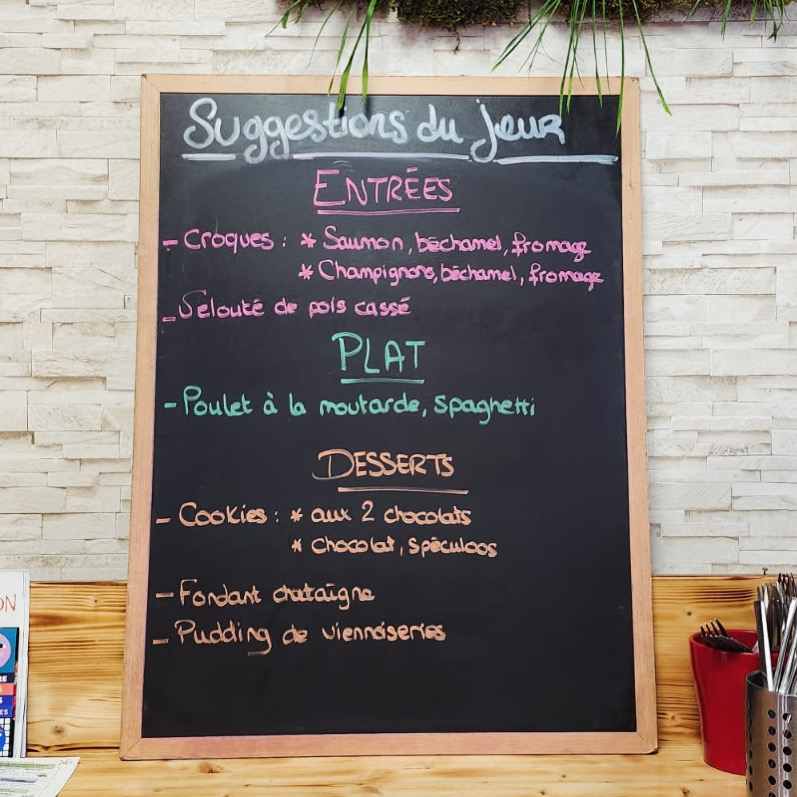 Suggestions du jour
ENTRÉES
- Croques : * Saumon, béchamel, fromage
* Champignons, béchamel, fromage
- Velouté de pois cassé
PLAT
- Poulet à la moutarde, spaghetti
DESSERTS
- Cookies : * aux 2 chocolats
* chocolat, spéculoos
- Fondant chataîgne
- Pudding de viennoiseries
ON